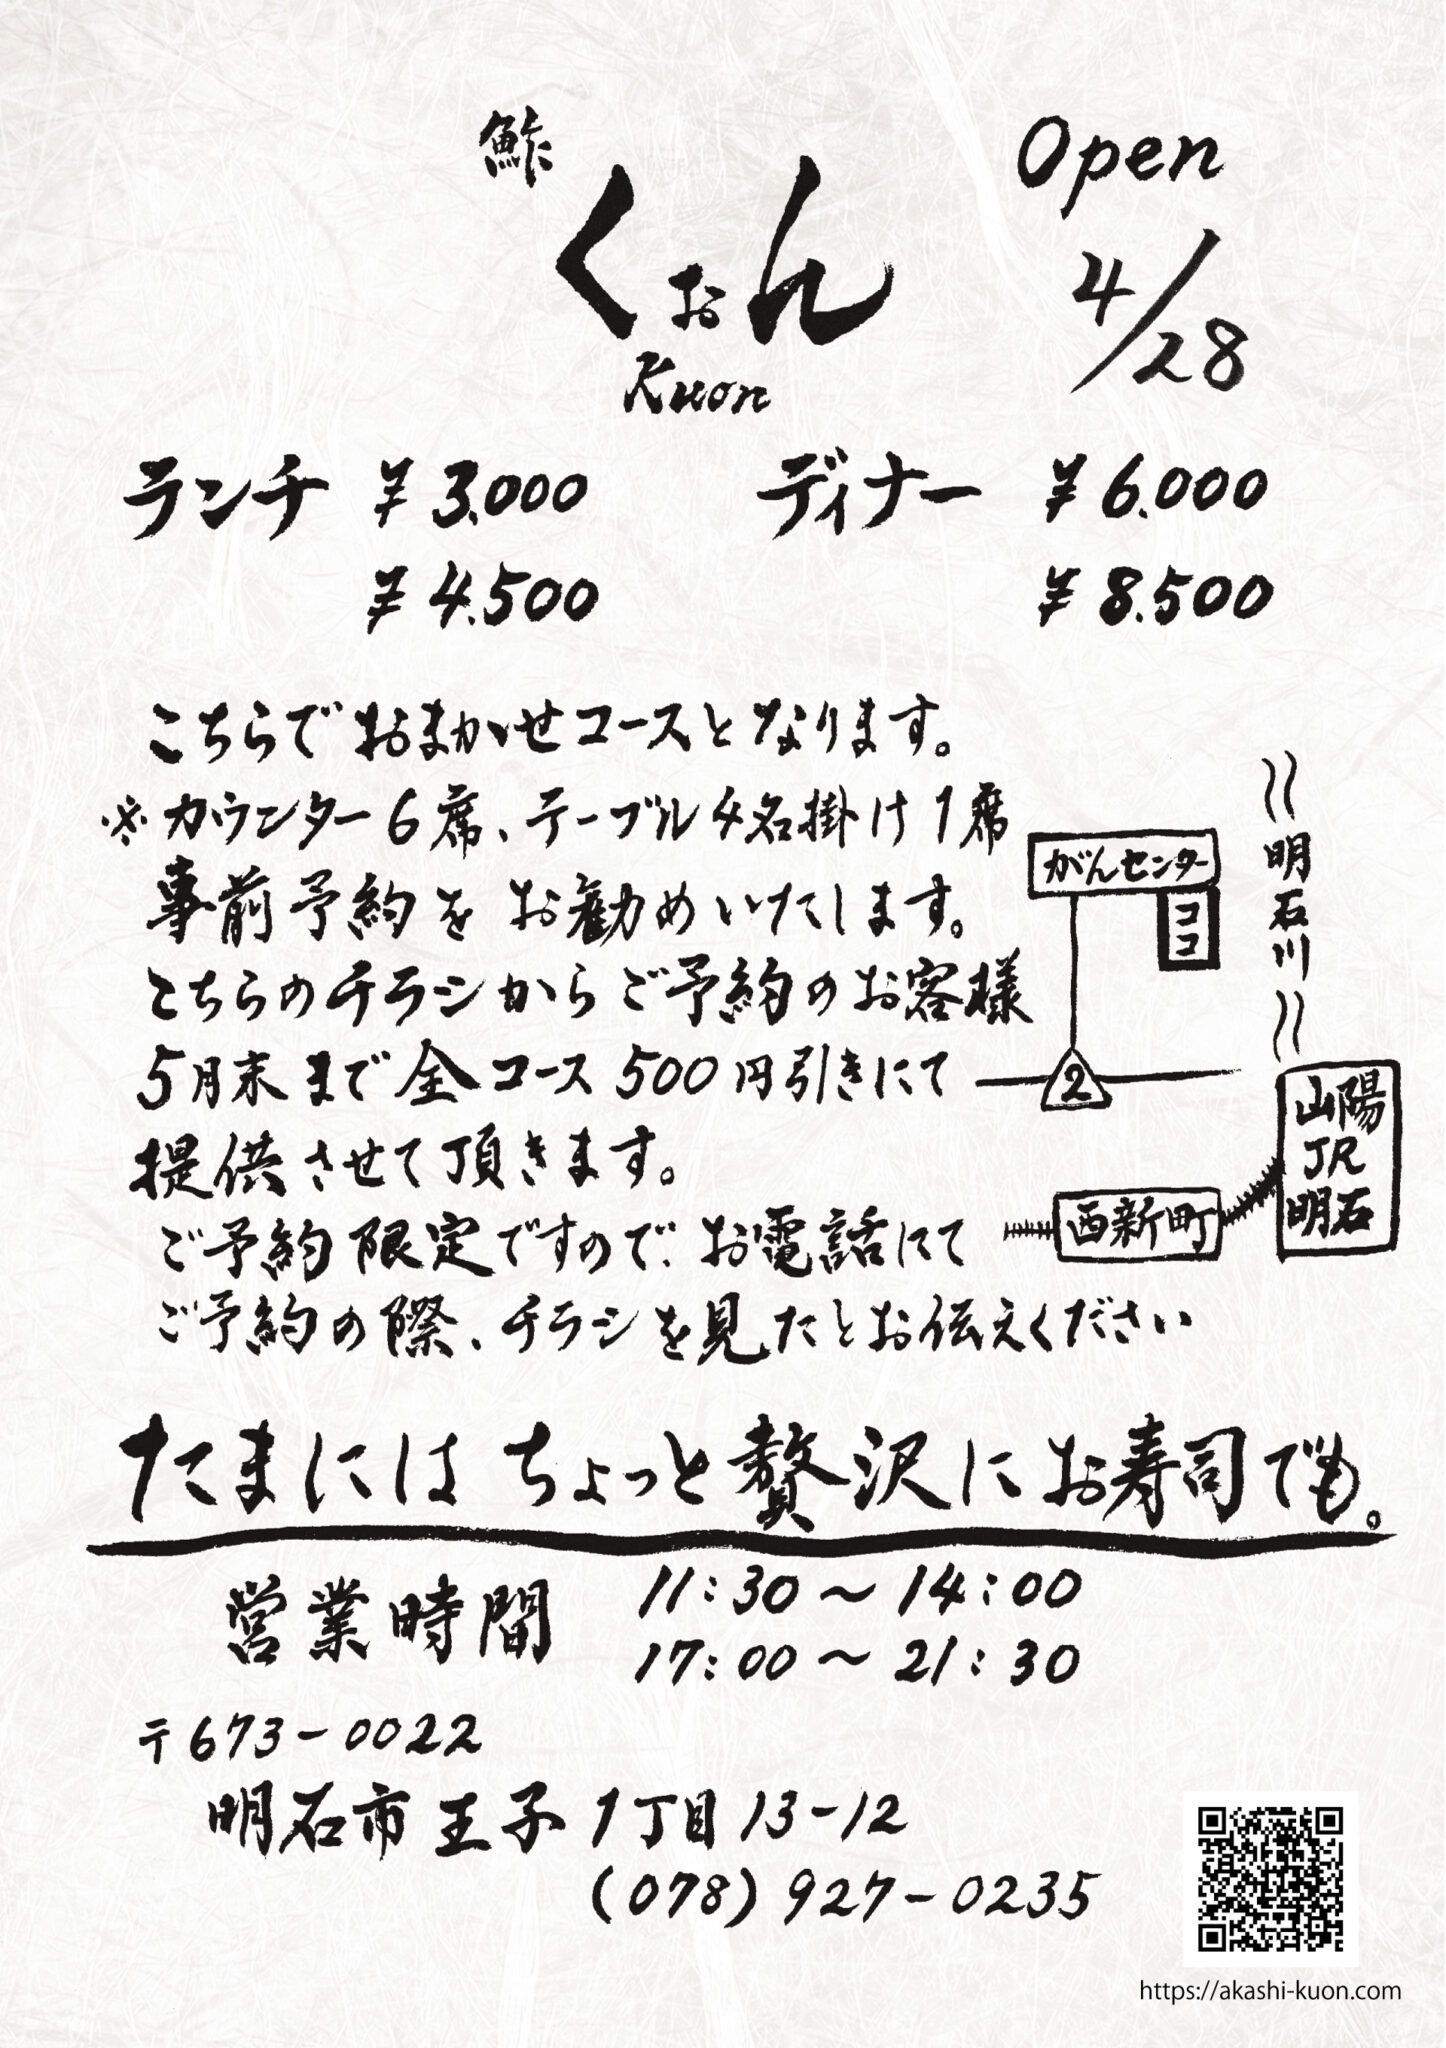 鮓
くおん
Kuon
Open
4/28
ランチ ¥3.000
¥4.500
ディナー ¥6.000
¥8.500
こちらでおまかせコースとなります。
※カウンター6席、テーブル4名掛け1席
事前予約をお勧めいたします。
こちらのチラシからご予約のお客様
5月末まで全コース500円引きにて
提供させて頂きます。
ご予約限定ですので、お電話にて
ご予約の際、チラシを見たとお伝えください
明石川
がんセンター
ココ
2
山陽
JR
明石
西新町
たまにはちょっと贅沢にお寿司でも。
営業時間 11:30～14:00
17:00～21:30
〒673-0022
明石市王子1丁目13-12
(078)927-0235
https://akashi-kuon.com